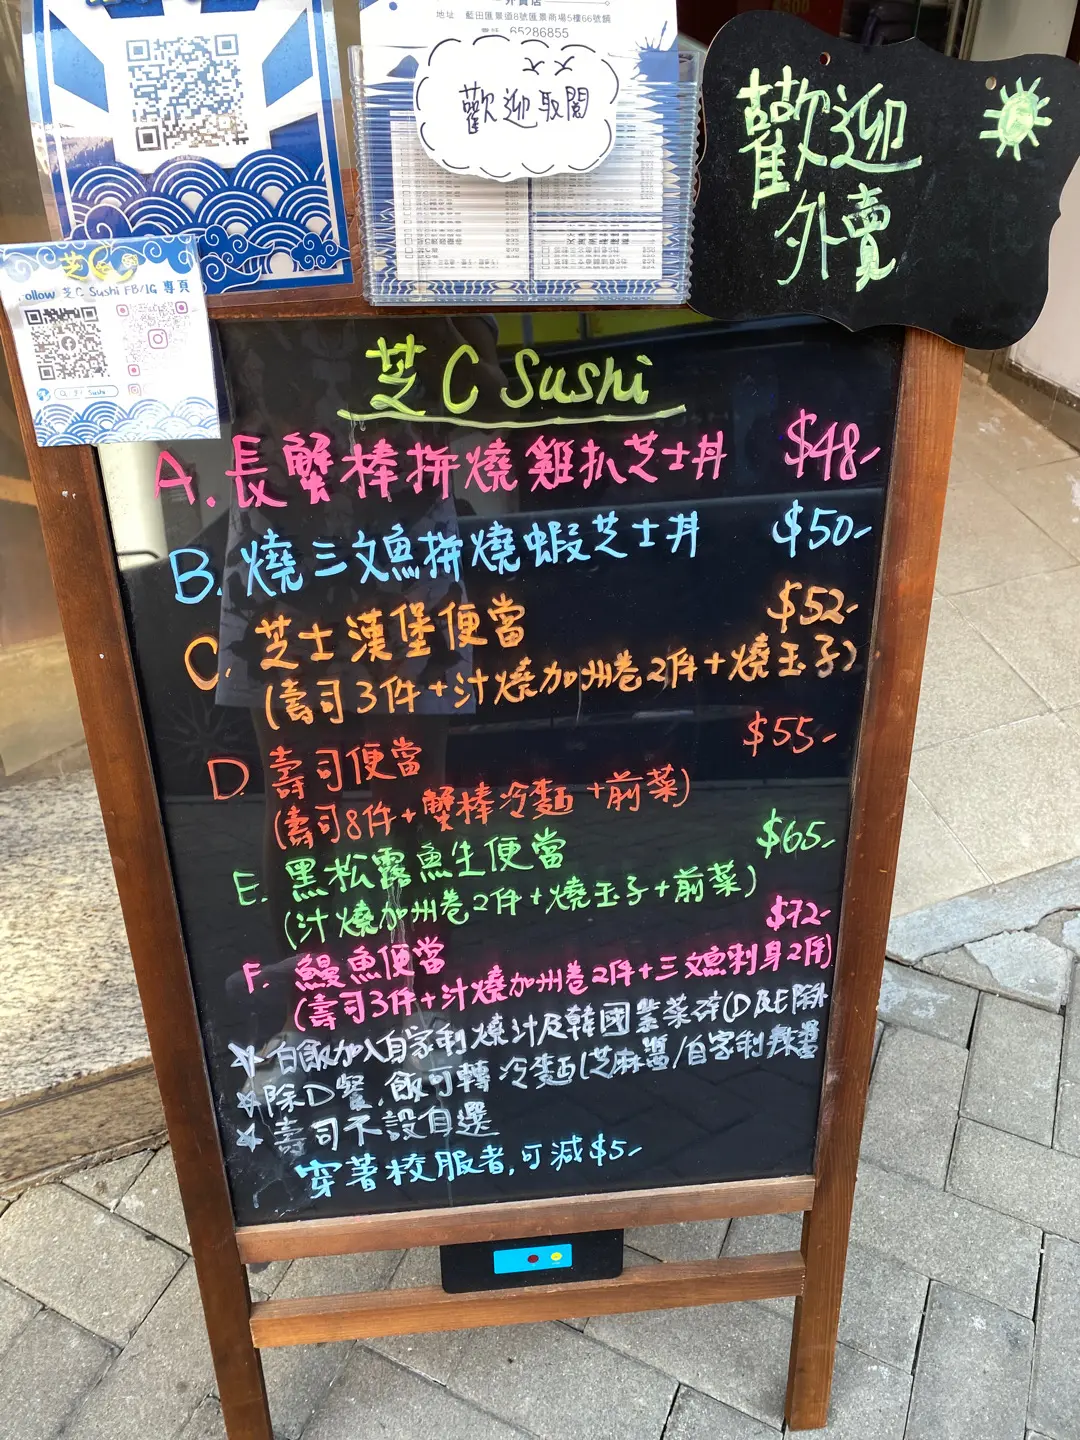 外賣店
地址 藍田匯景道8號匯景商場5樓66號舖
電話 65286855
歡迎取閱
歡迎
外賣
Follow 芝C Sushi FB/IG 專頁
芝C Sushi
A. 長蟹棒拼燒雞扒芝士丼 $48-
B. 燒三文魚拼燒蝦芝士丼 $50-
C. 芝士漢堡便當 $52-
(壽司3件+汁燒加州卷2件+燒玉子)
D. 壽司便當 $55-
(壽司8件+蟹棒冷麵+前菜)
E. 黑松露魚生便當 $65-
(汁燒加州卷2件+燒玉子+前菜)
F. 鰻魚便當 $72-
(壽司3件+汁燒加州卷2件+三文魚刺身2件)
☆ 白飯加入自家制燒汁及韓國紫菜碎(D及E除外
☆ 除D餐,飯可轉冷麵(芝麻醬/自家制辣醬
☆ 壽司不設自選
穿著校服者,可減$5-